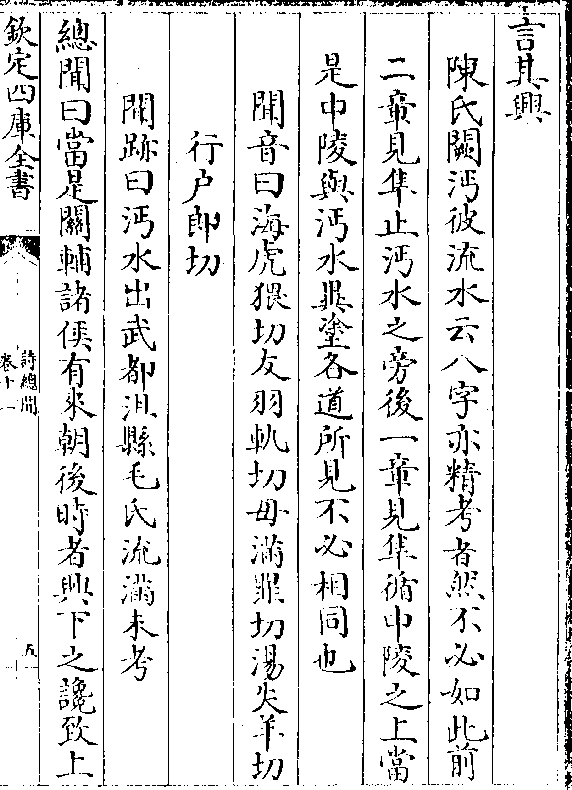 言其興
陳氏闕沔彼流水云八字亦精考者然不必如此前
二章見隼止沔水之旁後一章見隼循中陵之上當
是中陵與沔水異塗各道所見不必相同也
聞音曰海虎猥切友羽軌切母滿罪切湯失羊切
行户郎切
聞跡曰沔水出武都沮縣毛氏流滿未考
總聞曰當是關輔諸侯有來朝後時者興下之讒致上
欽定四庫全書
詩總聞
卷十一
五